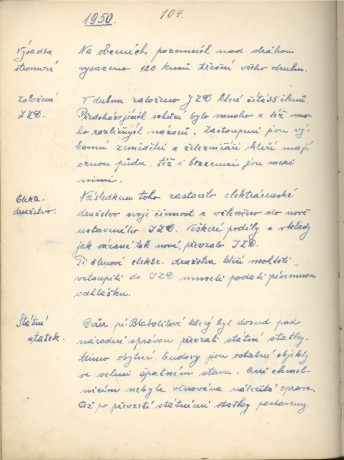 104.
1950.
Výsadba
stromová
Na obecních pozemcích nad dráhou
vysazeno 120 kusů třešní všeho druhu.
Založení
JZD.
V dubnu založeno JZD. které čítá 35 členů.
schůzí bylo mnoho a též mno-
ho rozličných názorů. Zastoupeni jsou vý-
konní zemědělci a železničáři kteří mají
ornou půdu, též i bezzemci jsou mezi
nimi.
Elektr.
družstvo.
Následkem toho zastavilo elektrárenské
družstvo svoji činnost a vtěleno do nově
ustaveného JZD. Veškeré podíly a vklady
jak vázané tak nové, převzalo JZD.
členové elektr. družstva kteří nechtěli
vstoupiti do JZD museli podati písemnou
odhlášku.
Státní
statek.
který byl dosud pod
národní správou převzali státní statky.
Mimo obytné budovy jsou ostatní objekty
ve velmi špatném stavu. Ani chmel-
nicím nebyla věnována náležitá správa.
Až po převzetí státními statky postaveny